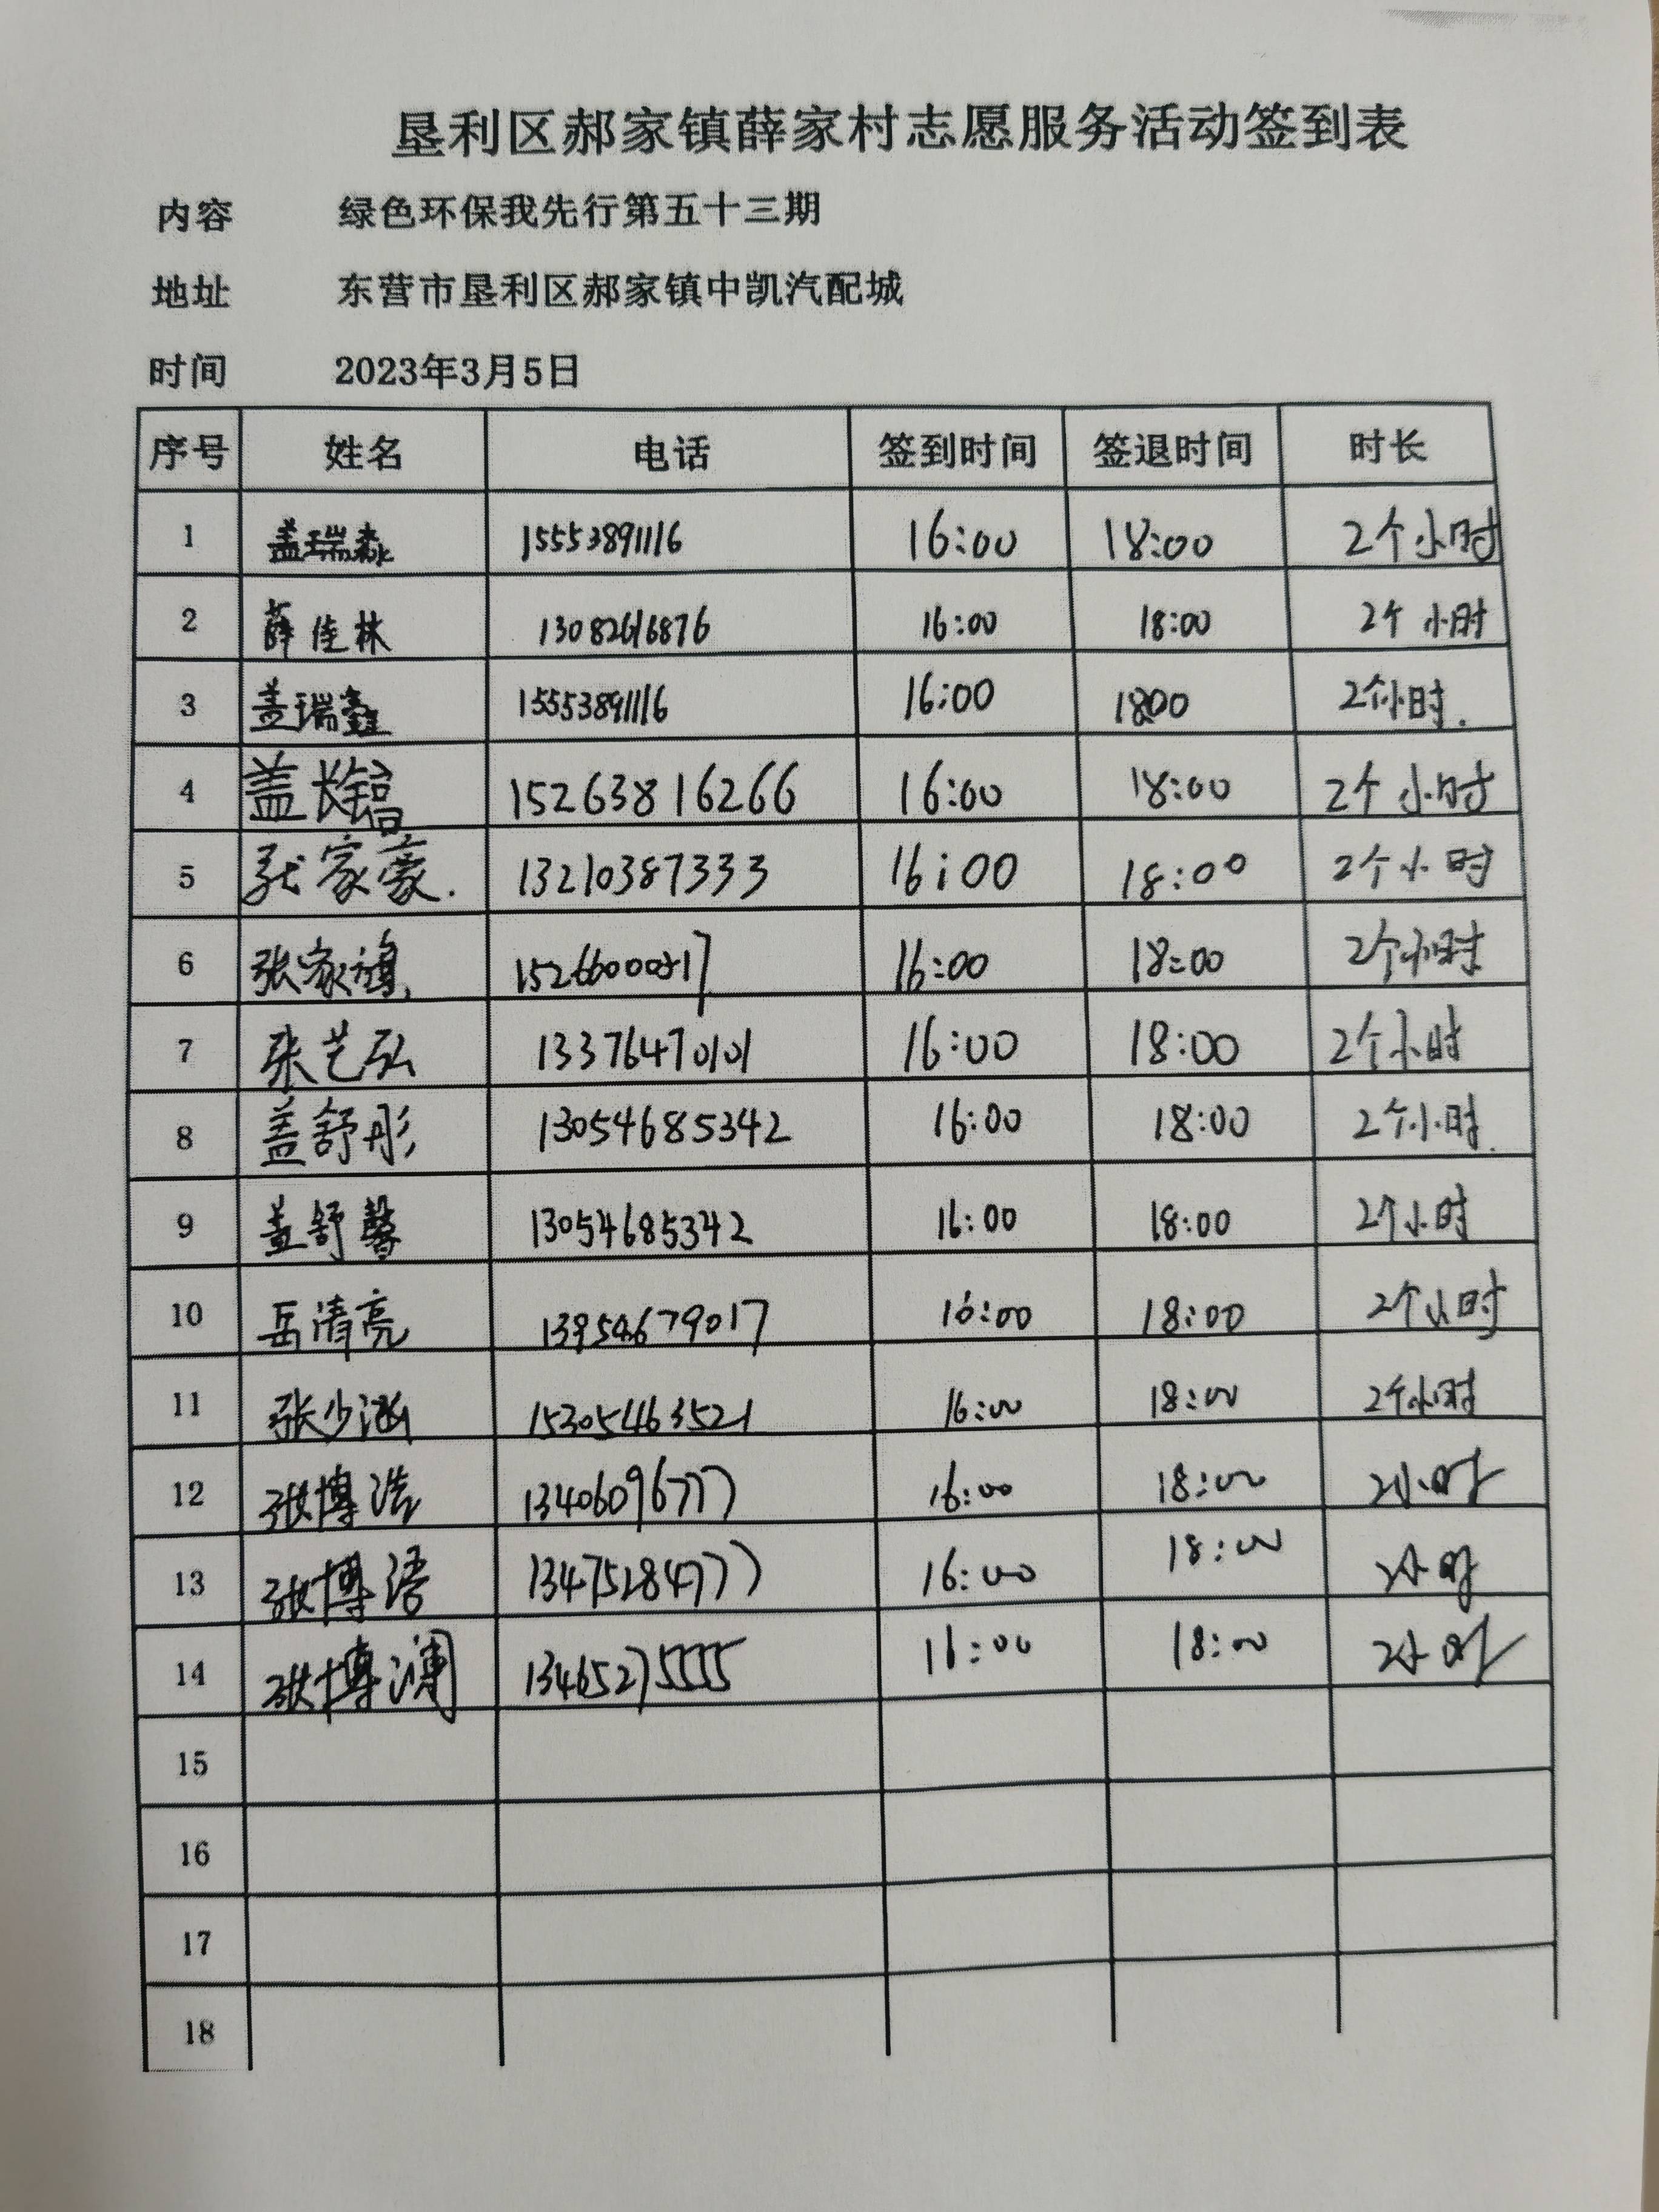 垦利区郝家镇薛家村志愿服务活动签到表
内容 绿色环保我先行第五十三期
地址 东营市垦利区郝家镇中凯汽配城
时间 2023年3月5日
序号 姓名 电话 签到时间 签退时间 时长
1 盖瑞森 15553891116 16:00 18:00 2个小时
2 薛佳林 13082616876 16:00 18:00 2个小时
3 盖瑞鑫 15553891116 16:00 1800 2个小时.
4 盖长镐 15263816266 16:00 18:00 2个小时
5 张家豪. 13210387333 16:00 18:00 2个小时
6 张家旗. 16:00 18:00 2个小时
7 张艺弘 13376470101 16:00 18:00 2个小时
8 盖舒彤 13054685342 16:00 18:00 2个小时.
9 盖舒馨 13054685342 16:00 18:00 2个小时
10 岳清亮 13954679017 16:00 18:00 2个小时
11 张少涵 15305463521 16:00 18:00 2个小时
12 张博浩 13406096777 16:00 18:00 2小时
13 张博语 13475284777 16:00 18:00 2小时
14 张博澜 13465275555 16:00 18:00 2小时
15
16
17
18